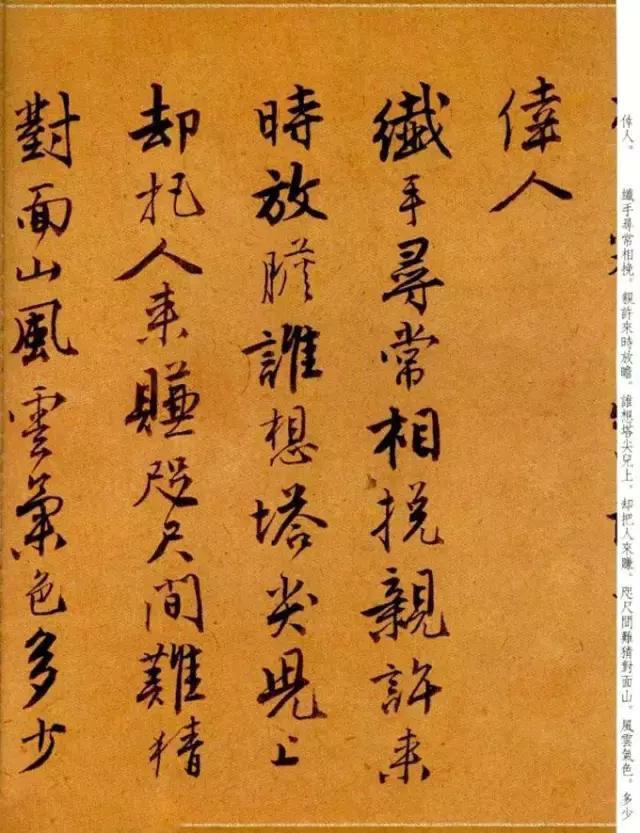 偉人
纖手尋常相挽親許来
時放瞻誰想塔尖児上
却把人来賺咫尺間難猜
對面山風雲氣色多少
偉人。　纖手尋常相挽。親許來時放瞻。誰想塔尖兒上。却把人來賺。咫尺間難猜對面山。風雲氣色。多少